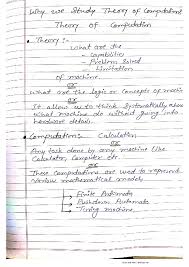 Why we Study Theory of Computation
Theory of Computation
• Theory :-
what are the
- Capabilities
- Problem Solved
- Limitation
of machine.
OR
What are the logic or concepts of machine
OR
It allow us to think Systematically about
what machine do without going into
hardware detail.
• Computation:- Calculation
OR
Any task done by any machine like
Calculator, Computer etc
OR
These Computations are used to represent
Various mathematical models
→ Finite Automata
→ Pushdown Automata
→ Turing machine.